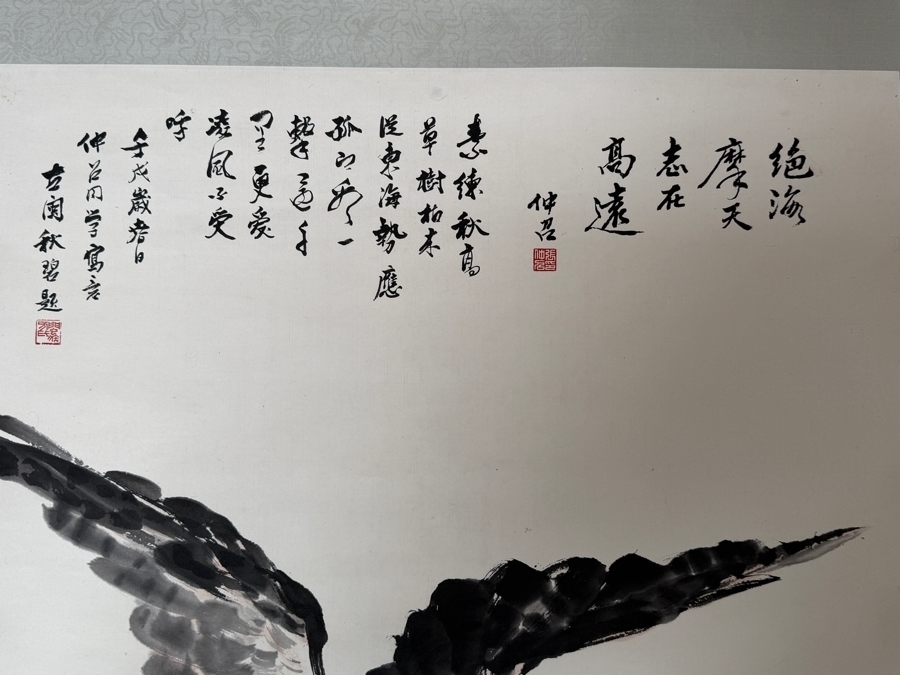 絕海
摩天
志在
高遠
仲召
張印
仲召
素練秋高
草樹枯來
從東海勢應
孤即看一
擊過千
里更愛
凌風不受
呼
壬戌歲春日
仲召同學寫意
古閩秋碧題